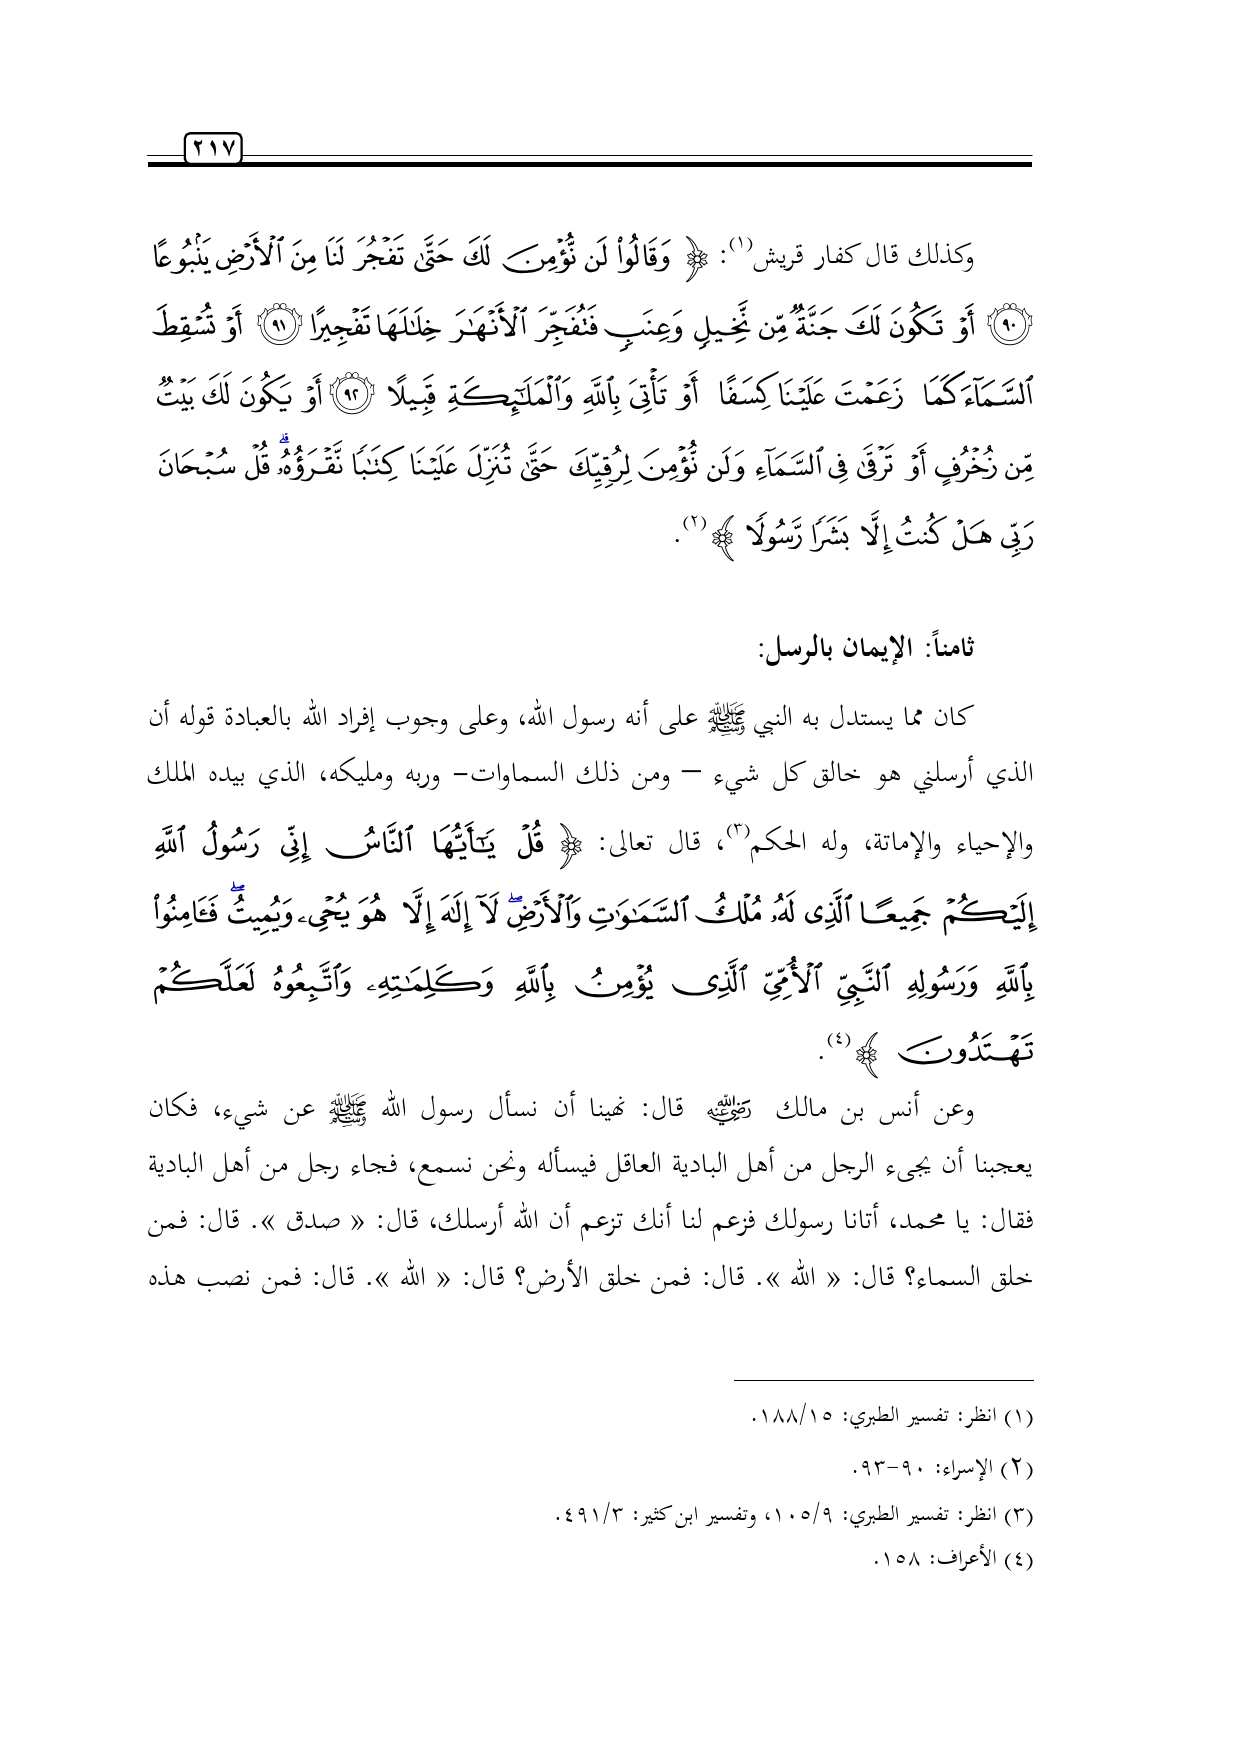 ٢١٧
وكذلك قال كفار قريش(١): ﴿ وَقَالُوا۟ لَن نُّؤْمِنَ لَكَ حَتَّىٰ تَفْجُرَ لَنَا مِنَ ٱلْأَرْضِ يَنۢبُوعًا
٩٠ أَوْ تَكُونَ لَكَ جَنَّةٌ مِّن نَّخِيلٍ وَعِنَبٍ فَتُفَجِّرَ ٱلْأَنْهَـٰرَ خِلَـٰلَهَا تَفْجِيرًا ٩١ أَوْ تُسْقِطَ
ٱلسَّمَآءَ كَمَا زَعَمْتَ عَلَيْنَا كِسَفًا أَوْ تَأْتِىَ بِٱللَّهِ وَٱلْمَلَـٰٓئِكَةِ قَبِيلًا ٩٢ أَوْ يَكُونَ لَكَ بَيْتٌ
مِّن زُخْرُفٍ أَوْ تَرْقَىٰ فِى ٱلسَّمَآءِ وَلَن نُّؤْمِنَ لِرُقِيِّكَ حَتَّىٰ تُنَزِّلَ عَلَيْنَا كِتَـٰبًا نَّقْرَؤُهُۥ ۗ قُلْ سُبْحَانَ
رَبِّى هَلْ كُنتُ إِلَّا بَشَرًا رَّسُولًا ﴾(٢).
ثامناً: الإيمان بالرسل:
كان مما يستدل به النبي ﷺ على أنه رسول الله، وعلى وجوب إفراد الله بالعبادة قوله أن
الذي أرسلني هو خالق كل شيء – ومن ذلك السماوات– وربه ومليكه، الذي بيده الملك
والإحياء والإماتة، وله الحكم(٣)، قال تعالى: ﴿ قُلْ يَـٰٓأَيُّهَا ٱلنَّاسُ إِنِّى رَسُولُ ٱللَّهِ
إِلَيْكُمْ جَمِيعًا ٱلَّذِى لَهُۥ مُلْكُ ٱلسَّمَـٰوَٰتِ وَٱلْأَرْضِ ۖ لَآ إِلَـٰهَ إِلَّا هُوَ يُحْىِۦ وَيُمِيتُ ۖ فَـَٔامِنُوا۟
بِٱللَّهِ وَرَسُولِهِ ٱلنَّبِىِّ ٱلْأُمِّىِّ ٱلَّذِى يُؤْمِنُ بِٱللَّهِ وَكَلِمَـٰتِهِۦ وَٱتَّبِعُوهُ لَعَلَّكُمْ
تَهْتَدُونَ ﴾(٤).
وعن أنس بن مالك رضي الله عنه قال: نهينا أن نسأل رسول الله ﷺ عن شيء، فكان
يعجبنا أن يجيء الرجل من أهل البادية العاقل فيسأله ونحن نسمع، فجاء رجل من أهل البادية
فقال: يا محمد، أتانا رسولك فزعم لنا أنك تزعم أن الله أرسلك، قال: « صدق ». قال: فمن
خلق السماء؟ قال: « الله ». قال: فمن خلق الأرض؟ قال: « الله ». قال: فمن نصب هذه
(١) انظر: تفسير الطبري: ١٨٨/١٥.
(٢) الإسراء: ٩٠-٩٣.
(٣) انظر: تفسير الطبري: ١٠٥/٩، وتفسير ابن كثير: ٤٩١/٣.
(٤) الأعراف: ١٥٨.